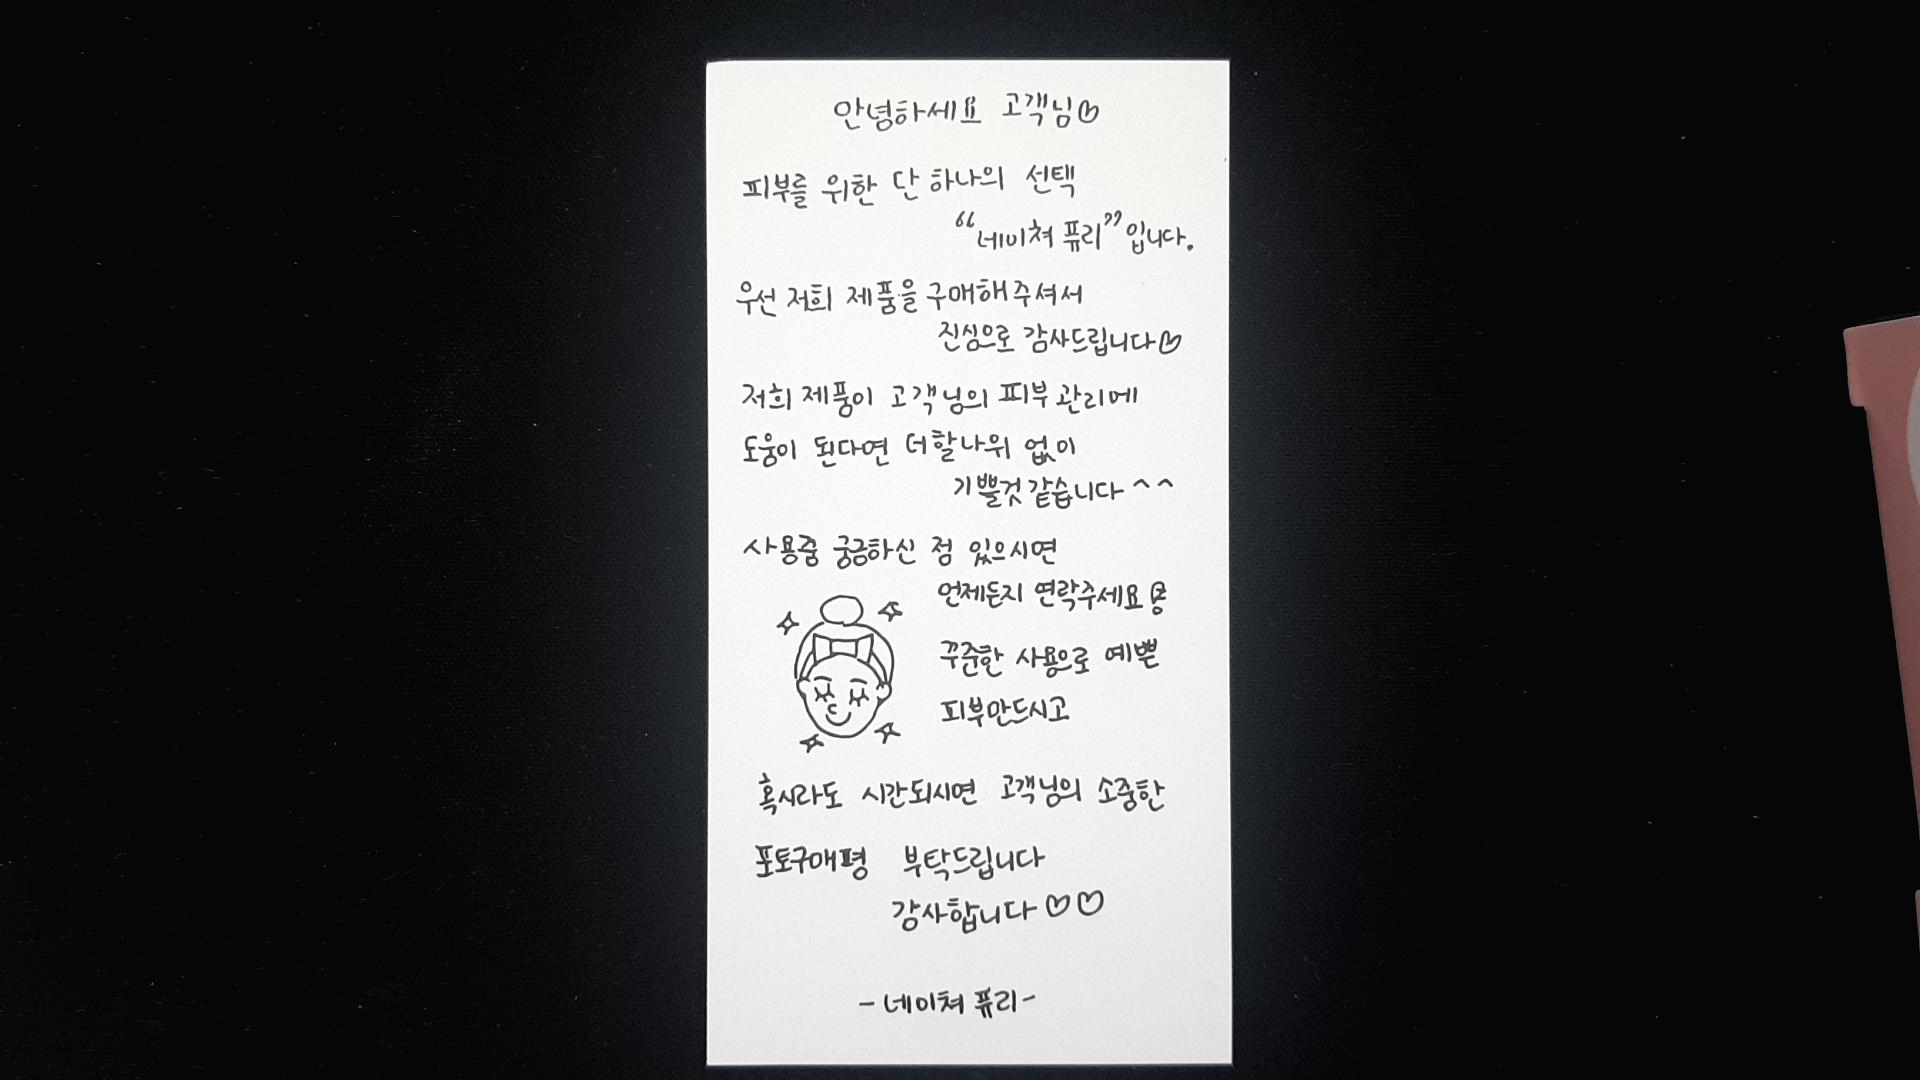 안녕하세요 고객님♡
피부를 위한 단 하나의 선택
"네이쳐 퓨리"입니다.
우선 저희 제품을 구매해주셔서
진심으로 감사드립니다♡
저희 제품이 고객님의 피부 관리에
도움이 된다면 더할나위 없이
기쁠것 같습니다 ^^
사용중 궁금하신 점 있으시면
언제든지 연락주세요
꾸준한 사용으로 예쁜
피부만드시고
혹시라도 시간되시면 고객님의 소중한
포토구매평 부탁드립니다
감사합니다♡♡
-네이쳐 퓨리-